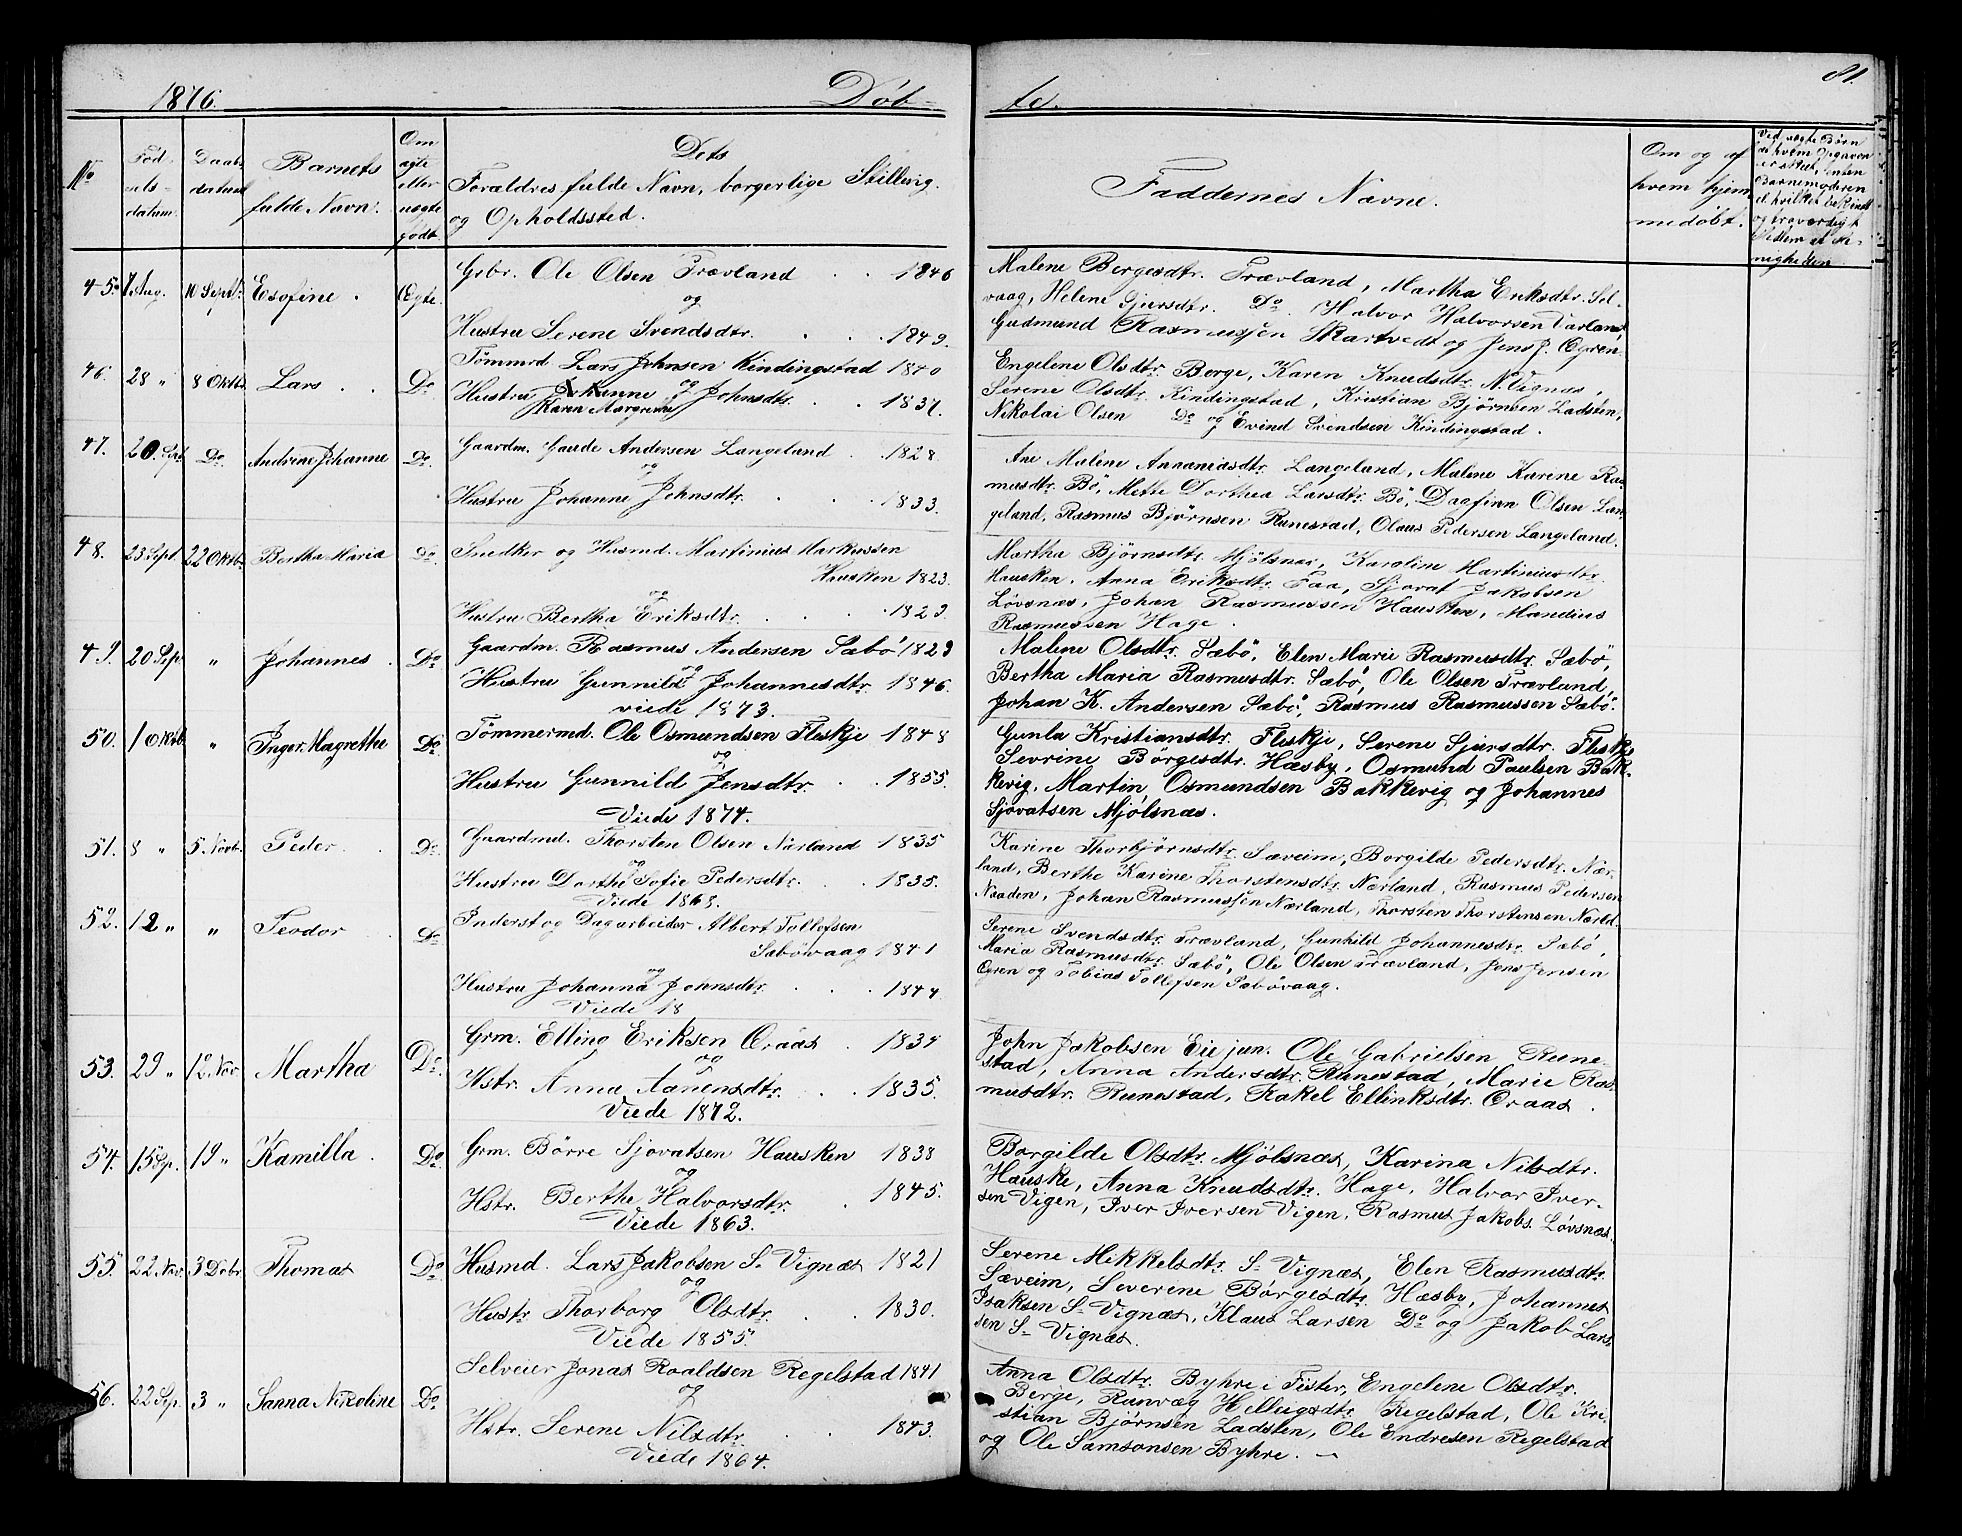 1876. Döb- te. 81.
No Fød- Daabs Barnets Om Dets Faddernes Navne. Om og af Ved uægte Børn
els- datum fulde Navn. ægte Forældres fulde Navn, borgerlige Stilling hvem hjem-
datum eller og Opholdssted. medöbt.
uægte
födt
45. 7 Aug. 10 Septb. Esofine. Ægte. Grbr. Ole Olsen Trævland 1846
og
Hustru Serene Svendsdtr. 1849.
Malene Bergesdtr. Trævland, Martha Eriksdtr. Sel-
vaag, Helene Sjursdtr. Do. Halvor Halvorsen Varland
Gudmund Rasmussen Skartvedt og Jens J. Ögren.
46. 28 " 8 Oktb. Lars Do. Tömmrd. Lars Johnsen Kindingstad 1840
og
Hustru Johanne Johnsdtr. 1837.
Karen Margrethe
Engelene Olsdtr. Berge, Karen Knudsdtr. N. Vignæs,
Serene Olsdtr. Kindingstad, Kristian Björnsen Ladsten,
Nikolai Olsen Do og Evind Svendsen Kindingstad.
47. 20 Sept. Do. Andrine Johanne Do. Gaardm. Gaude Andersen Langeland 1828
og
Hustru Johanne Johnsdtr. 1833.
Ane Malene Ananiasdtr. Langeland, Malene Karine Ras-
musdtr. Bö, Mette Dorthea Larsdtr. Bö, Daafinn Olsen Lan-
geland, Rasmus Björnsen Runestad, Olaus Pedersen Langeland.
48. 23 Sept. 22 Oktb. Bertha Maria Do. Snedker og Husmd. Martinius Markussen
Hausken 1823.
og
Hustru Bertha Eriksdtr. 1829.
Martha Björnsdtr. Mjölsnæs, Karoline Martiniusdtr.
Hausken, Anna Eriksdtr. Faa, Sjovat Jakobsen
Lövsnæs, Johan Rasmussen Hausken, Mandius
Rasmussen Hage.
49. 20 Sep. " Johannes. Do. Gaardm. Rasmus Andersen Sæbö 1829
og
Hustru Gunnild Johannesdtr 1846.
viede 1873.
Malene Olsdtr. Sæbö, Elen Marie Rasmusdtr. Sæbö,
Bertha Maria Rasmusdtr. Sæbö, Ole Olsen Trævland,
Johan K. Andersen Sæbö, Rasmus Rasmussen Sæbö.
50. 1 Oktb. " Inger Magrethe Do. Tömmermd. Ole Osmundsen Fleskje 1848
og
Hustru Gunnild Jensdtr. 1855.
Viede 1874.
Gunla Kristiansdtr. Fleskje, Serene Sjursdtr. Fleskje
Sevrine Börgesdtr. Hæsby, Osmund Paulsen Bak-
kevig, Martin Osmundsen Bakkevig og Johannes
Sjovatsen Mjölsnæs.
51. 8 " 5. Novb. Peder Do. Gaardmd. Thorsten Olsen Nærland 1835
og
Hustru Dorthe Sofie Pedersdtr. 1835.
Viede 1863.
Karine Thorbjörnsdtr. Sæveim, Borgilde Pedersdtr. Nær-
land, Berthe Karine Thorstensdtr. Nærland, Rasmus Pedersen
Naaden, Johan Rasmussen Nærland, Thorsten Thorstensen Nærld.
52. 12 " " Teodor Do Inderst og Dagarbeider Albert Tollefsen
Sæbövaag 1841
og
Hustru Johanna Johnsdtr. 1844.
Viede 18
Serene Svendsdtr. Trævland, Gunhild Johannesdtr. Sæbö,
Maria Rasmusdtr. Sæbö, Ole Olsen Trævland, Jens Jensen
Ögren og Tobias Tollefsen Sæbövaag.
53. 29 " 12 Nov. Martha Do. Grm. Elling Eriksen Øraas 1834
og
Hstr. Anna Aanensdtr. 1835.
Viede 1872.
John Jakobsen Eie jun. Ole Gabrielsen Rune-
stad, Anna Andersdtr. Runestad, Marie Ras-
musdtr. Runestad, Rakel Ellinksdtr. Øraas.
54. 15 Sep. 19 " Kamilla. Do Grm. Börre Sjovatsen Hausken 1838
og
Hstr. Berthe Halvorsdtr. 1845.
Viede 1863.
Borgilde Olsdtr. Mjölsnæs, Karina Nilsdtr.
Hauske, Anna Knudsdtr. Hage, Halvor Iver-
sen Vigen, Iver Iversen Vigen, Rasmus Jakobs. Lövsnæs
55. 22 Nov. 3 Debr. Thomas Do Husmd. Lars Jakobsen S. Vignæs 1821
og
Hustr Thorborg Olsdtr. 1830.
Viede 1855.
Serene Mikkelsdtr. S. Vignæs, Elen Rasmusdtr.
Sæveim, Severine Börgesdtr. Hæsby, Johannes
Isaksen S. Vignæs, Klaus Larsen Do og Jakob Lars-
sen S. Vignæs.
56. 22 Sep. 3 " Sanna Nikoline Do. Selveier Jonas Roaldsen Regelstad 1841
og
Hstr. Serene Nilsdtr. 1843.
Viede 1864.
Anna Olsdtr. Byhre i Fister, Engelene Olsdtr.
Berge, Runvæg Helliesdtr. Regelstad, Ole Kri-
stian Björnsen Ladsten, Ole Endresen Regelstad
og Ole Samsonsen Byhre.